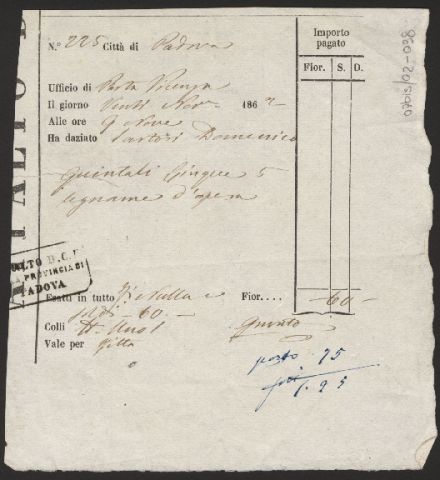 Importo
pagato
N.° 225 Città di Padova
Fior. S. D.
Ufficio di Porta Vicenza
Il giorno Venti Nov.e 186
Alle ore 9 Nove
Ha daziato Sartori Domenico
Quintali Cinque 5
legname d'opera
APPALTO D
OLTO D.C.
PROVINCIA DI
PADOVA
Esatti in tutto Fi Nulla e Fior.... —60—
soldi —60—
Colli N. Uno 1
Vale per
porto 75
1.95
07bis/02-038